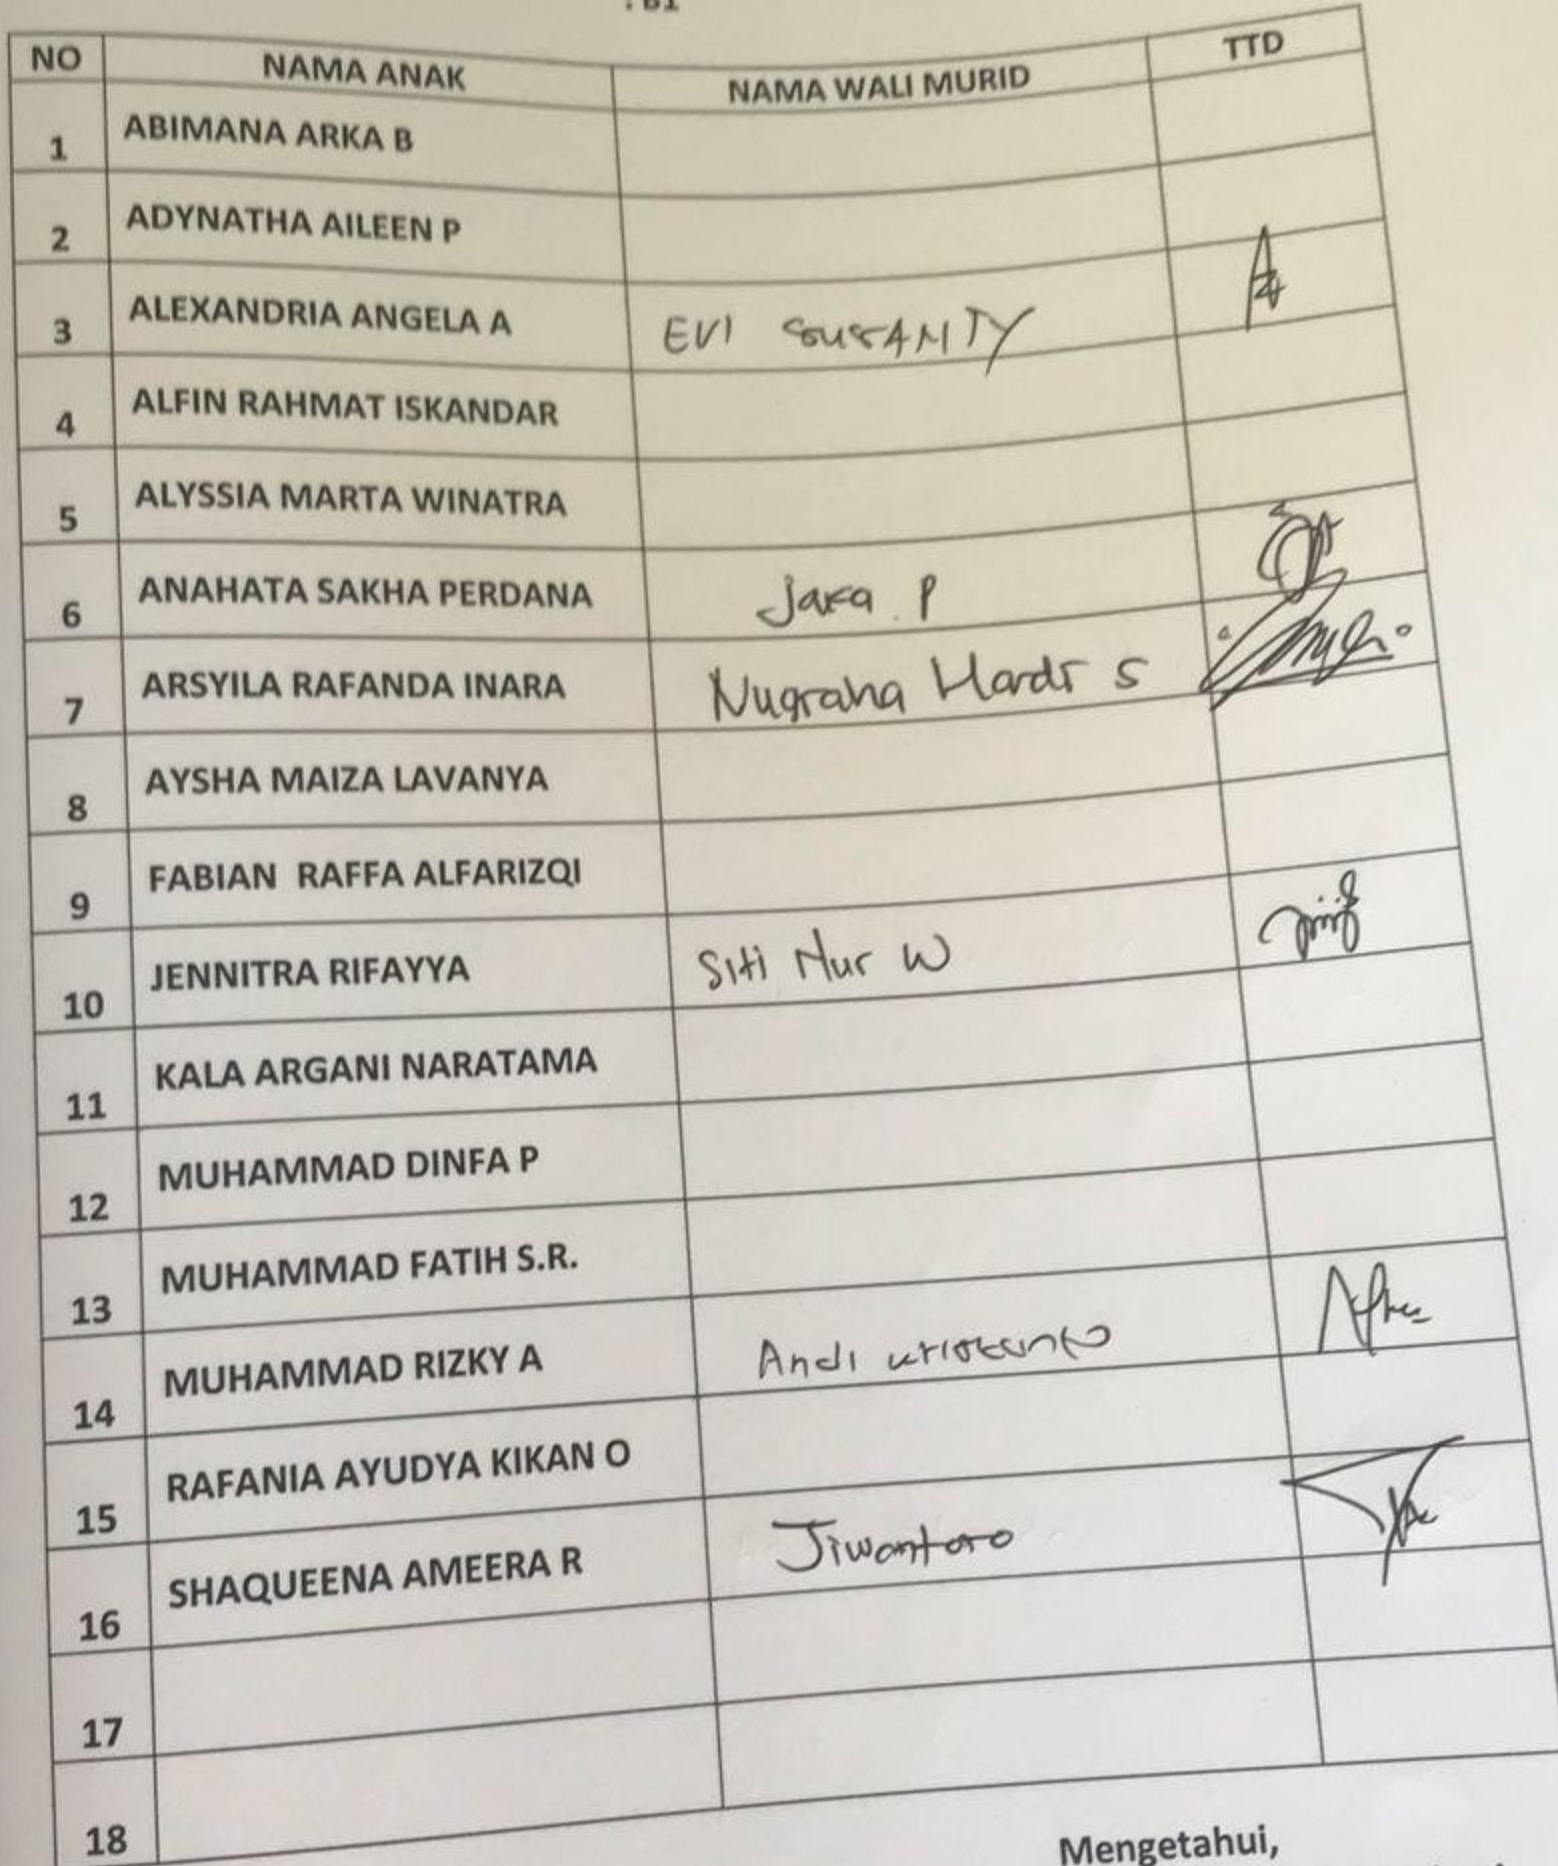 : B1
NO NAMA ANAK NAMA WALI MURID TTD
1 ABIMANA ARKA B
2 ADYNATHA AILEEN P
3 ALEXANDRIA ANGELA A EVI SUSANTY
4 ALFIN RAHMAT ISKANDAR
5 ALYSSIA MARTA WINATRA
6 ANAHATA SAKHA PERDANA Jaka P
7 ARSYILA RAFANDA INARA Nugraha Hardi S
8 AYSHA MAIZA LAVANYA
9 FABIAN RAFFA ALFARIZQI
10 JENNITRA RIFAYYA Siti Nur W
11 KALA ARGANI NARATAMA
12 MUHAMMAD DINFA P
13 MUHAMMAD FATIH S.R.
14 MUHAMMAD RIZKY A Andi kristanto
15 RAFANIA AYUDYA KIKAN O
16 SHAQUEENA AMEERA R Jiwantoro
17
18
Mengetahui,